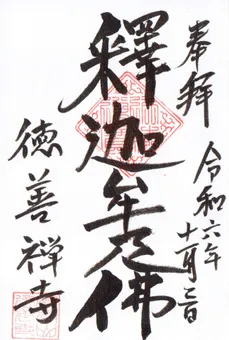 奉拝
令和六年
十一月三日
釋迦牟尼佛
徳善禅寺